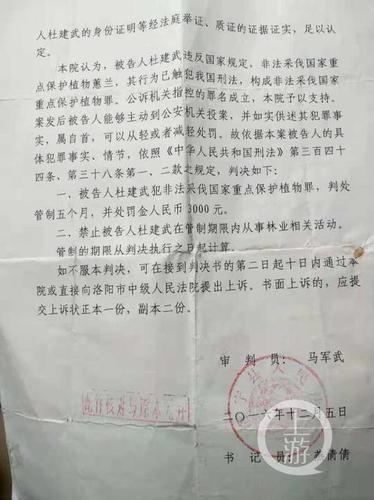 人杜建武的身份证明等经法庭举证、质证的证据证实，足以认
定。
本院认为，被告人杜建武违反国家规定，非法采伐国家重
点保护植物蕙兰，其行为已触犯我国刑法，构成非法采伐国家
重点保护植物罪。公诉机关指控的罪名成立，本院予以支持。
案发后被告人能够主动到公安机关投案，并如实供述其犯罪事
实，属自首，可以从轻或者减轻处罚。故依据本案被告人的具
体犯罪事实、情节，依照《中华人民共和国刑法》第三百四十
四条、第三十八条第一、二款之规定，判决如下：
一、被告人杜建武犯非法采伐国家重点保护植物罪，判处
管制五个月，并处罚金人民币 3000 元。
二、禁止被告人杜建武在管制期限内从事林业相关活动。
管制的期限从判决执行之日起计算。
如不服本判决，可在接到判决书的第二日起十日内通过本
院或直接向洛阳市中级人民法院提出上诉。书面上诉的，应提
交上诉状正本一份，副本二份。
审 判 员： 马军武
二〇一六年十二月五日
书 记 员：
倩倩
上游